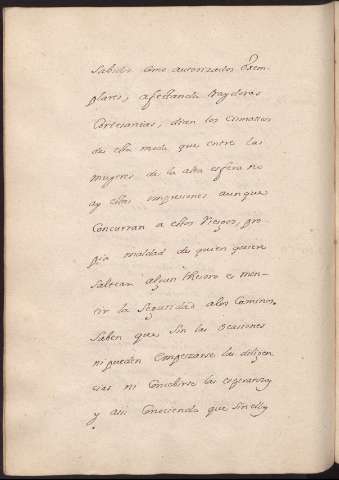 sabido como autorizados Exem-
plares, afectando traydoras
Cortesanias, diran los
de esta moda que entre las
mugeres de la alta esfera no
ay estas impresiones aunque
Concurran a estos Riesgos, pro-
pia maldad de quien quiere
saltear algun thesoro es men-
tir la Seguridad a los Caminos
Saben que sin las ocasiones
ni pueden Compezarse las diligen
cias ni Concibirse las esperanzas
y asi Conociendo que sin ellas